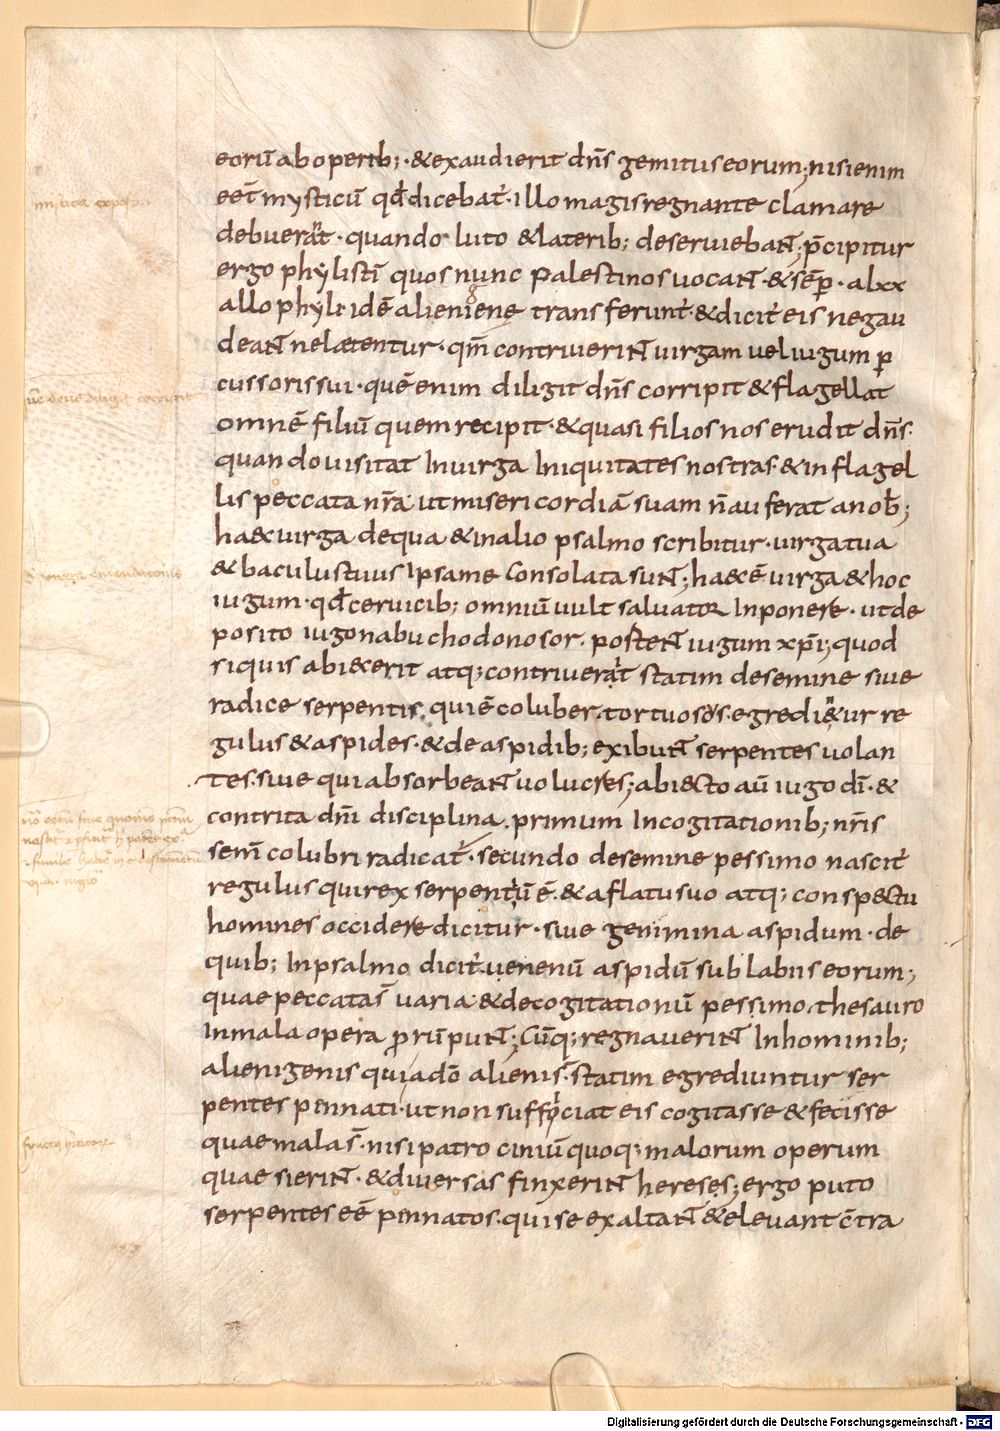 eorū ab operib; · & exaudierit dn̄s gemitus eorum; nisi enim
eēt mysticū qđ dicebat · illo magis regnante clamare
debuerat · quando luto & laterib; deseruiebant; p̄cipitur
ergo phylistī quos nunc palestinos uocant · & sēp · a lxx
allophyli · idē alienigene transferunt · & dicit eis ne gau
deant ne laetentur · qm̄ contriuerint uirgam uel iugum p
cussoris sui · quē enim diligit dn̄s corripit & flagellat
omnē filiū quem recipit · & quasi filios nos erudit dn̄s ·
quando uisitat In uirga Iniquitates nostras · & in flagel
lis peccata nr̄a · ut misericordiā suam n̄ auferat a nob̄;
haec uirga de qua & in alio psalmo scribitur · uirga tua
& baculus tuus Ipsa me consolata sunt; haec ē uirga & hoc
iugum · qđ ceruicib; omniū uult saluator Inponere · ut de
posito iugo nabuchodonosor · portent iugum xp̄i; quod
si quis abiecerit atq; contriuerat statim de semine siue
radice serpentis · qui ē coluber tortuosus · egredietur re
gulus & aspides · & de aspidib; exibunt serpentes uolan
tes · siue qui absorbeant uolucres; abiecto aū iugo dī · &
contrita dn̄i disciplina · primum In cogitationib; nr̄is
sem̄ colubri radicat · secundo de semine pessimo nascit
regulus qui rex serpentū ē · & aflatu suo atq; conspectu
homines occidere dicitur · siue genimina aspidum · de
quib; In psalmo dicit · uenenū aspidū sub labiis eorum;
quae peccata s̄ uaria · & de cogitationū pessimo thesauro
In mala opera prūpunt; Cūq; regnauerint In hominib;
alienigenis qui a dō alieni s̄ · statim egrediuntur ser
pentes pennati · ut non sufficiat eis cogitasse & fecisse
quae mala s̄ · nisi patrociniū quoq; malorum operum
quaesierint · & diuersas finxerint hereses; ergo puto
serpentes eē pennatos · qui se exaltant & eleuant c̄tra
Digitalisierung gefördert durch die Deutsche Forschungsgemeinschaft - DFG